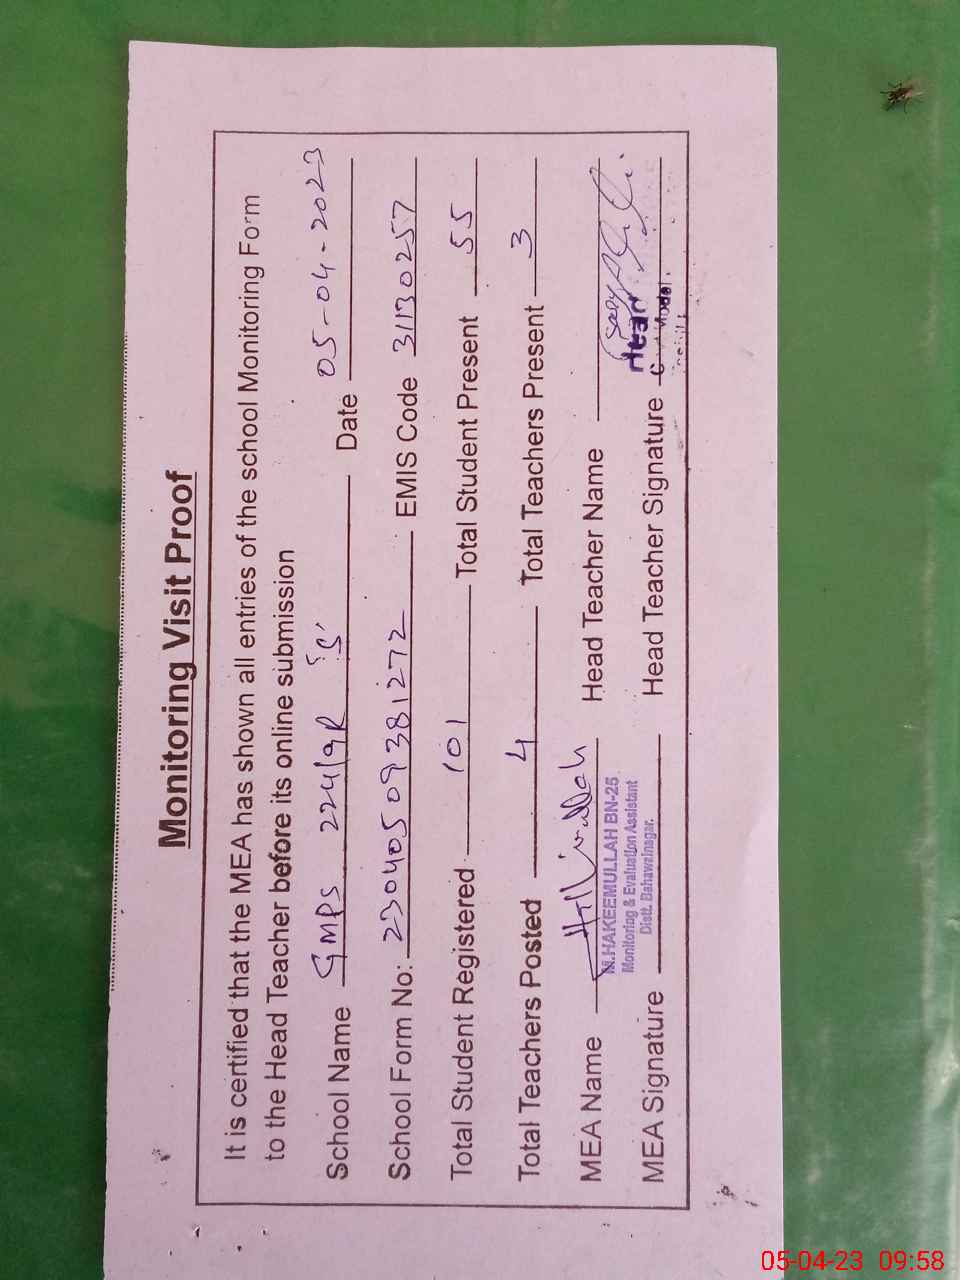 Monitoring Visit Proof
It is certified that the MEA has shown all entries of the school Monitoring Form
to the Head Teacher before its online submission
School Name GMPS 224/9R 'S' Date 05-04-2023
School Form No: 23040509381272 EMIS Code 31130257
Total Student Registered 101 Total Student Present 55
Total Teachers Posted 4 Total Teachers Present 3
MEA Name Head Teacher Name
M.HAKEEMULLAH BN-25
Monitoring & Evaluation Assistant
Distt. Bahawalnagar.
Head
Model
MEA Signature Head Teacher Signature
05-04-23 09:58